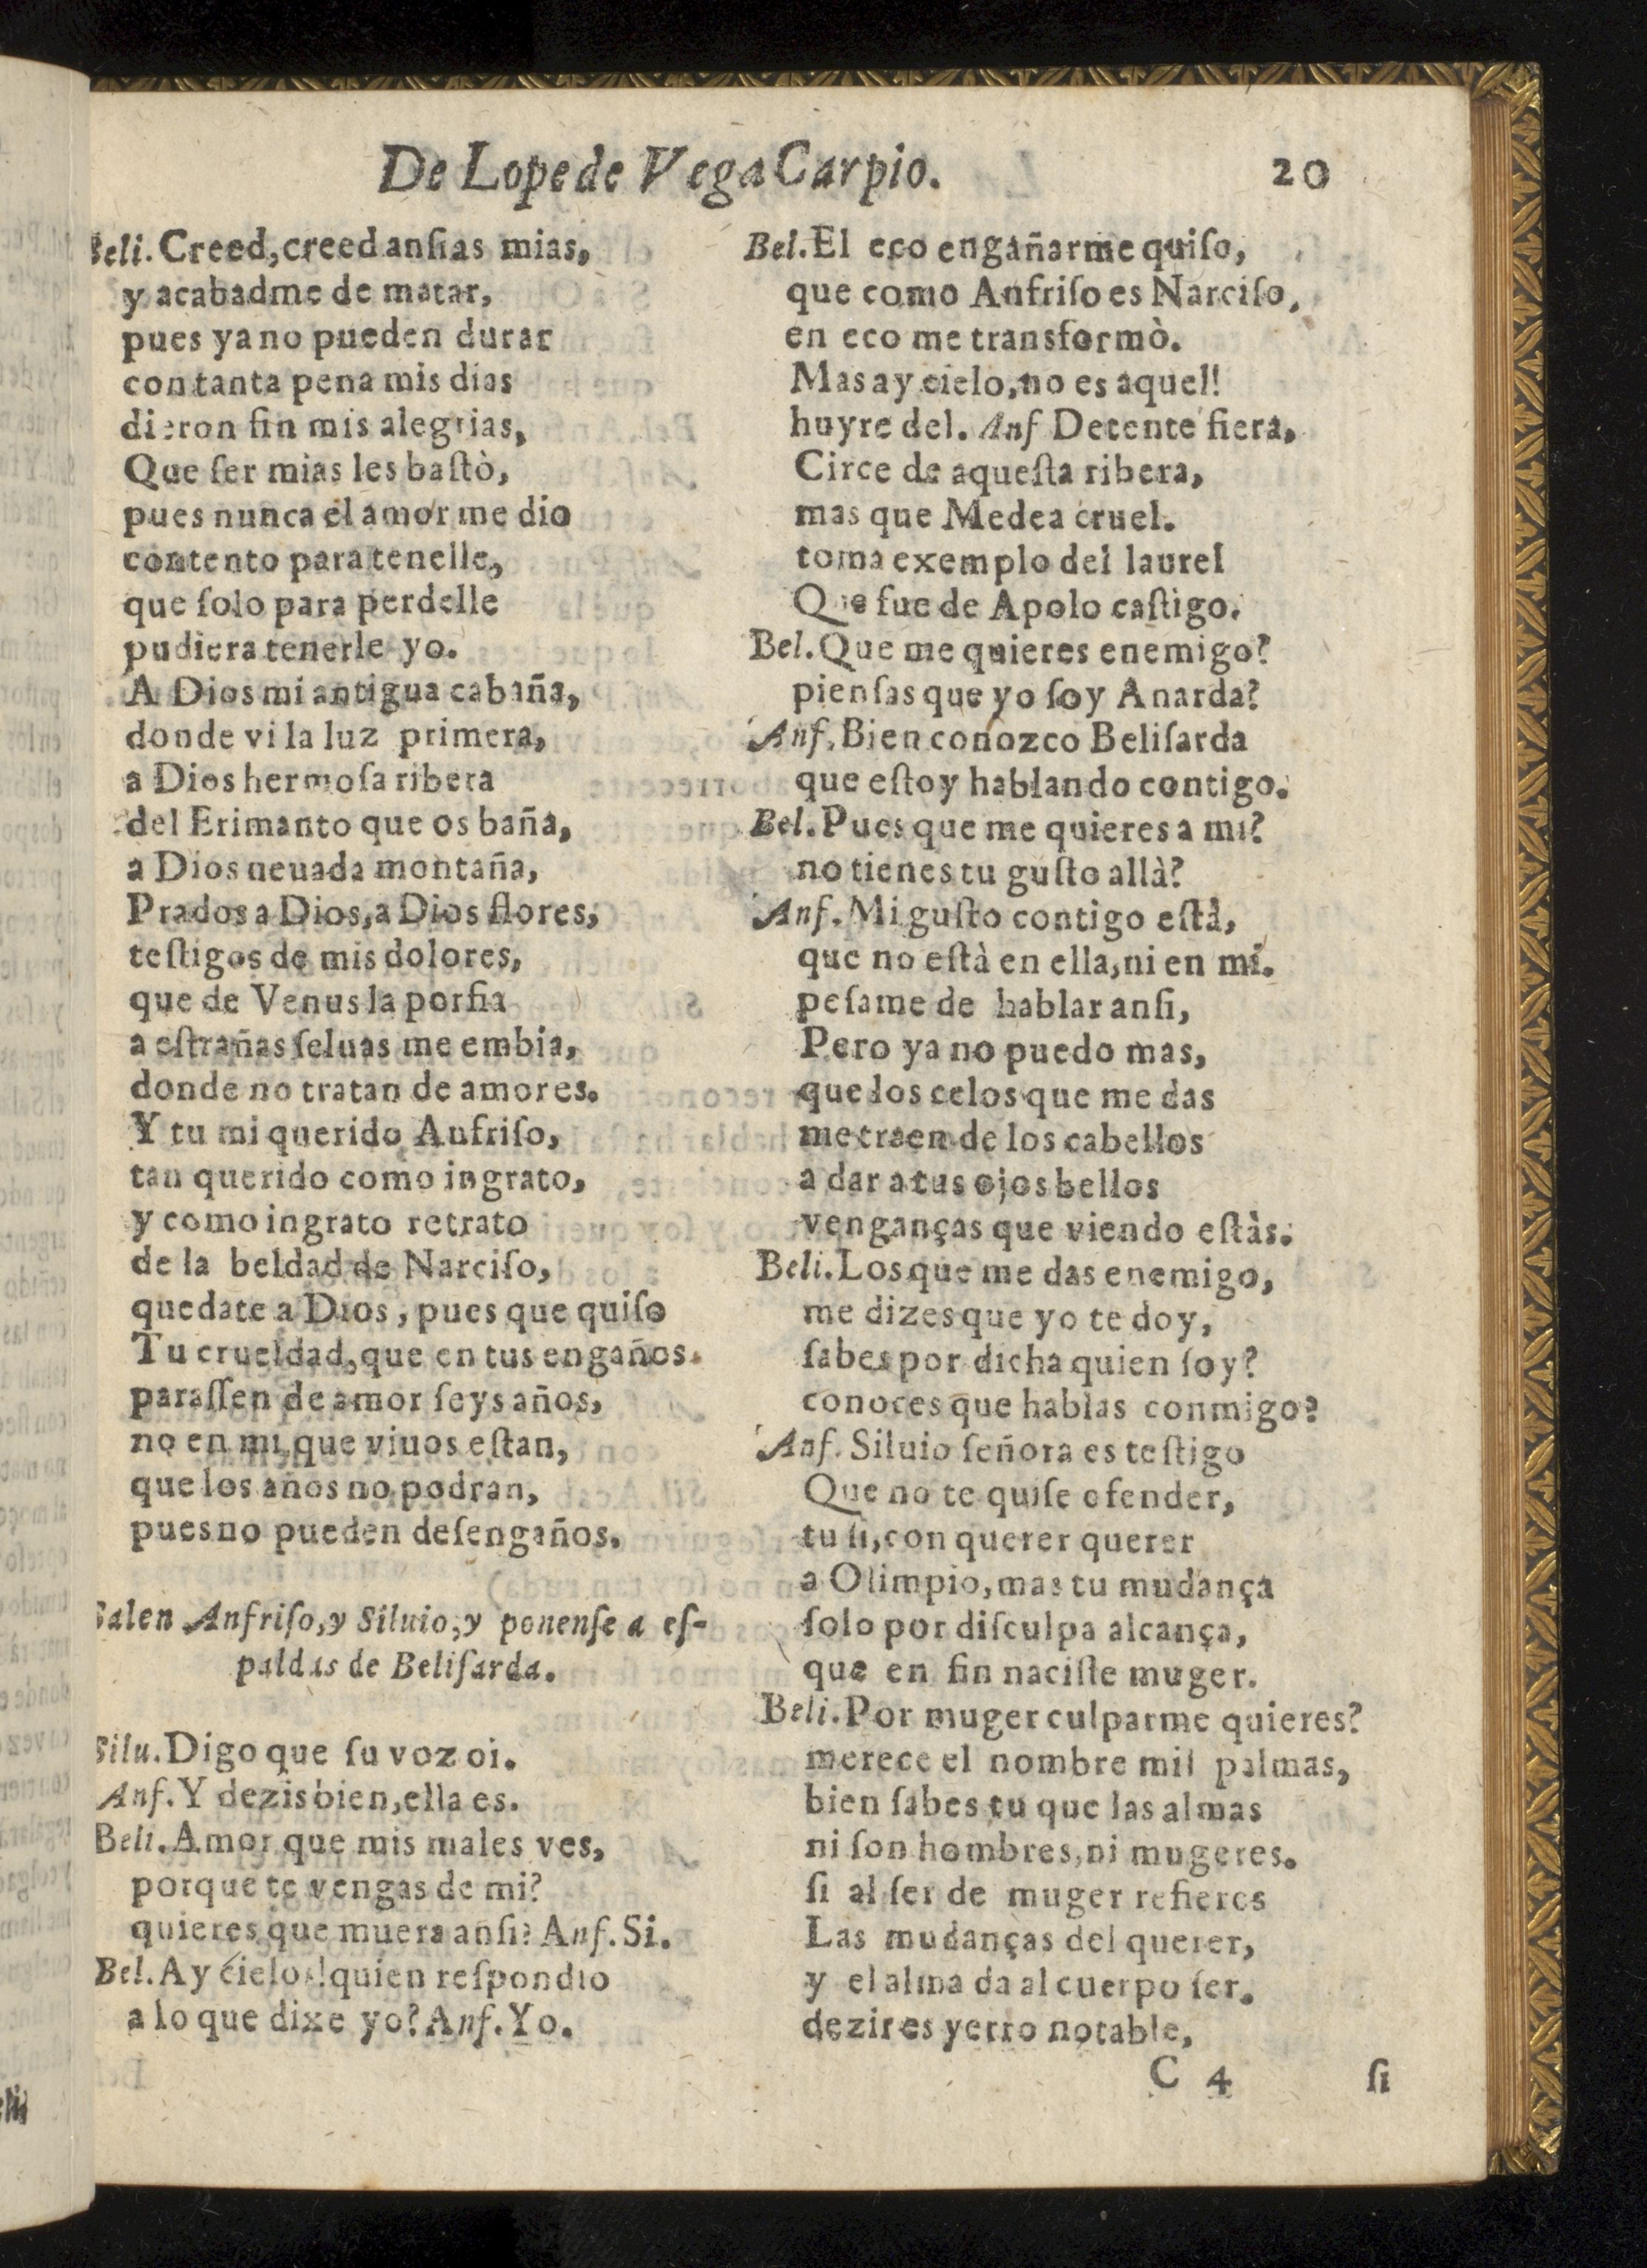 De Lope de Vega Carpio. 20
Beli. Creed, creed ansias mias,
y acabadme de matar,
pues ya no pueden durar
con tanta pena mis dias
dieron fin mis alegrias,
Que ſer mias les baſtò,
pues nunca el amor me dio
contento para tenelle,
que ſolo para perdelle
pudiera tenerle yo.
A Dios mi antigua cabaña,
donde vi la luz primera,
a Dios hermoſa ribera
del Erimanto que os baña,
a Dios neuada montaña,
Prados a Dios, a Dios flores,
teſtigos de mis dolores,
que de Venus la porfia
a eſtrañas ſeluas me embia,
donde no tratan de amores.
Y tu mi querido Anfriſo,
tan querido como ingrato,
y como ingrato retrato
de la beldad de Narciſo,
quedate a Dios, pues que quiſo
Tu crueldad, que en tus engaños.
paraſſen de amor ſeys años,
no en mi, que viuos eſtan,
que los años no podran,
pues no pueden deſengaños.
Salen Anfriſo, y Siluio, y ponenſe a eſ-
paldas de Beliſarda.
Silu. Digo que ſu voz oi.
Anf. Y dezis bien, ella es.
Beli. Amor que mis males ves,
porque te vengas de mi?
quieres que muera anſi? Anf. Si.
Bel. Ay cielos! quien reſpondio
a lo que dixe yo? Anf. Yo.
Bel. El eco engañarme quiſo,
que como Anfriſo es Narciſo,
en eco me transformò.
Mas ay cielo, no es aquel!
huyre del. Anf Detente fiera,
Circe de aqueſta ribera,
mas que Medea cruel.
toma exemplo del laurel
Que fue de Apolo caſtigo.
Bel. Que me quieres enemigo?
pienſas que yo ſoy Anarda?
Anf. Bien conozco Beliſarda
que eſtoy hablando contigo.
Bel. Pues que me quieres a mi?
no tienes tu guſto allà?
Anf. Mi guſto contigo eſtà,
que no eſtà en ella, ni en mi.
peſame de hablar anſi,
Pero ya no puedo mas,
que los celos que me das
me traen de los cabellos
a dar a tus ojos bellos
venganças que viendo eſtàs.
Beli. Los que me das enemigo,
me dizes que yo te doy,
ſabes por dicha quien ſoy?
conoces que hablas conmigo?
Anf. Siluio ſeñora es teſtigo
Que no te quiſe ofender,
tu ſi, con querer querer
a Olimpio, mas tu mudança
ſolo por diſculpa alcança,
que en fin naciſte muger.
Beli. Por muger culparme quieres?
merece el nombre mil palmas,
bien ſabes tu que las almas
ni ſon hombres, ni mugeres.
ſi al ſer de muger refieres
Las mudanças del querer,
y el alma da al cuerpo ſer.
dezir es yerro notable,
C 4 ſi